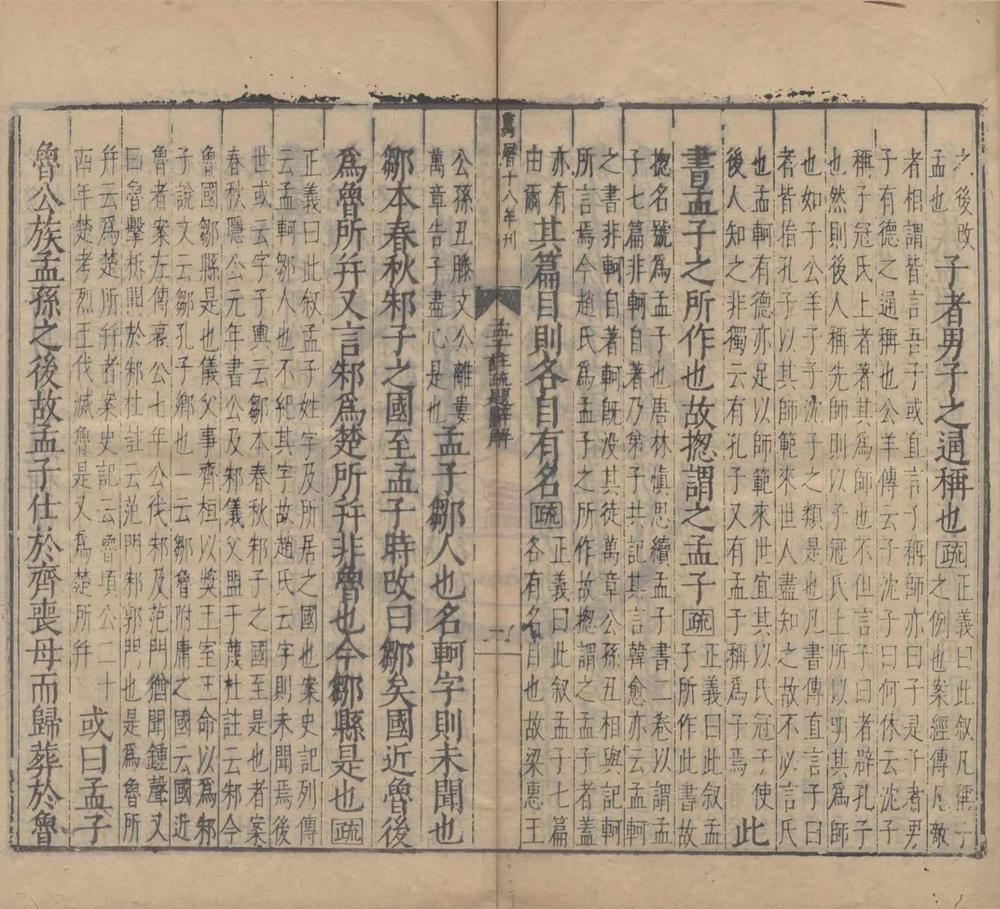 之後改
孟也
子者男子之通稱也疏
正義曰此叙凡稱子
之例也案經傳凡敵
者相謂皆言吾子或直言子稱師亦曰子是子者男
子有德之通稱也公羊傳云子沈子曰何休云沈子
稱子冠氏上者著其為師也不但言子曰者辟孔子
也然則後人稱先師則以子冠氏上所以明其為師
也如子公羊子子沈子之類是也凡書傳直言子曰
者皆指孔子以其師範來世人盡知之故不必言氏
也孟軻有德亦足以師範來世宜其以氏冠子使
後人知之非獨云有孔子又有孟子稱為子焉
此
書孟子之所作也故揔謂之孟子疏
正義曰此叙孟
子所作此書故
揔名號為孟子也唐林慎思續孟子書二卷以謂孟
子七篇非軻自著乃弟子共記其言韓愈亦云孟軻
之書非軻自著軻既没其徒萬章公孫丑相與記軻
所言焉今趙氏為孟子之所作故揔謂之孟子者蓋
亦有
由爾
其篇目則各自有名疏
正義曰此叙孟子七篇
各有名目也故梁惠王
萬曆十八年刊
孟子註疏題辭解
一
公孫丑滕文公離婁
萬章告子盡心是也
孟子鄒人也名軻字則未聞也
鄒本春秋邾子之國至孟子時改曰鄒矣國近魯後
為魯所幷又言邾為楚所幷非魯也今鄒縣是也疏
正義曰此叙孟子姓字及所居之國也案史記列傳
云孟軻鄒人也不紀其字故趙氏云字則未聞焉後
世或云字子輿云鄒本春秋邾子之國至是也者案
春秋隱公元年書公及邾儀父盟于蔑杜註云邾今
魯國鄒縣是也儀父事齊桓以獎王室王命以為邾
子說文云鄒孔子鄉也一云鄒魯附庸之國云國近
魯者案左傳哀公七年公伐邾及范門猶聞鍾聲又
曰魯擊柝聞於邾杜註云范門邾郭門也是為魯所
幷云為楚所幷者案史記云魯頃公二十
四年楚考烈王伐滅魯是又為楚所幷
或曰孟子
魯公族孟孫之後故孟子仕於齊喪母而歸葬於魯